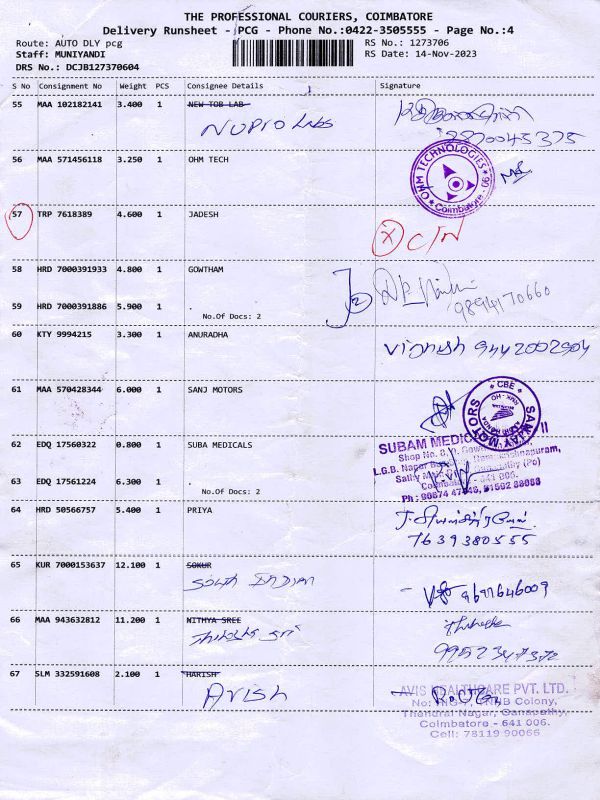 THE PROFESSIONAL COURIERS, COIMBATORE
Delivery Runsheet - PCG - Phone No.:0422-3505555 - Page No.:4
Route: AUTO DLY pcg RS No.: 1273706
Staff: MUNIYANDI RS Date: 14-Nov-2023
DRS No.: DCJB127370604
S No Consignment No Weight PCS Consignee Details Signature
55 MAA 102182141 3.400 1 NEW TOB LAB
NUPRO Labs
56 MAA 571456118 3.250 1 OHM TECH
OHM TECHNOLOGIES
Coimbatore - 06
57 TRP 7618389 4.600 1 JADESH
X C/N
58 HRD 7000391933 4.800 1 GOWTHAM
2
9894170660
59 HRD 7000391886 5.900 1
No.Of Docs: 2
60 KTY 9994215 3.300 1 ANURADHA
Vignesh 9442002904
61 MAA 570428344 6.000 1 SANJ MOTORS
SANJAY MOTORS
CBE
62 EDQ 17560322 0.800 1 SUBA MEDICALS
SUBAM
63 EDQ 17561224 6.300 1
No.Of Docs: 2
L.G.B. Nagar
641 006.
64 HRD 50566757 5.400 1 PRIYA
7639380555
65 KUR 7000153637 12.100 1 SOKUR
SOUTH INDIAN
9697646009
66 MAA 943632812 11.200 1 NITHYA SREE
67 SLM 332591608 2.100 1 HARISH
Arish
AVIS HEALTHCARE PVT. LTD.
Colony,
Thendral Nagar, Ganapathy,
Coimbatore - 641 006.
Cell: 78119 90066